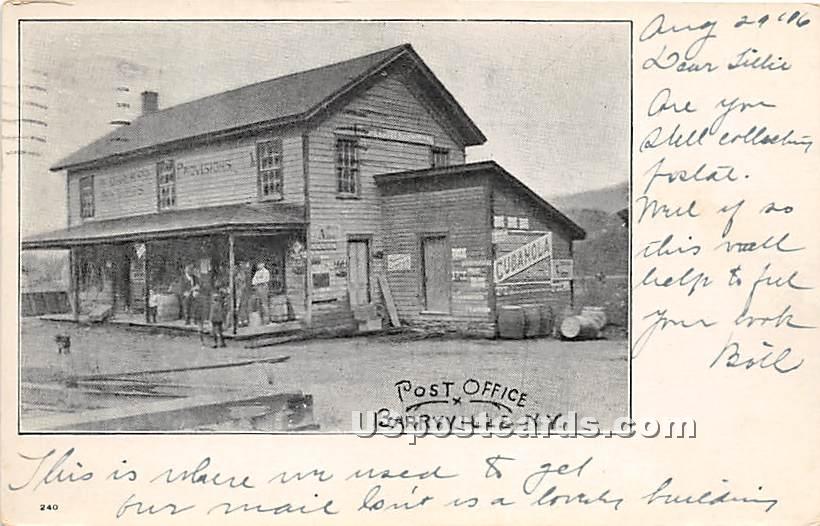 Aug 29 '06
Dear Tillie
Are you
still collecting
postal.
Well if so
this will
help to fill
your book
Bill
PROVISIONS
CUBANOLA
POST OFFICE
BARRYVILLE N.Y.
USpostcards.com
This is where we used to get
our mail Isn't is a lovely building
240